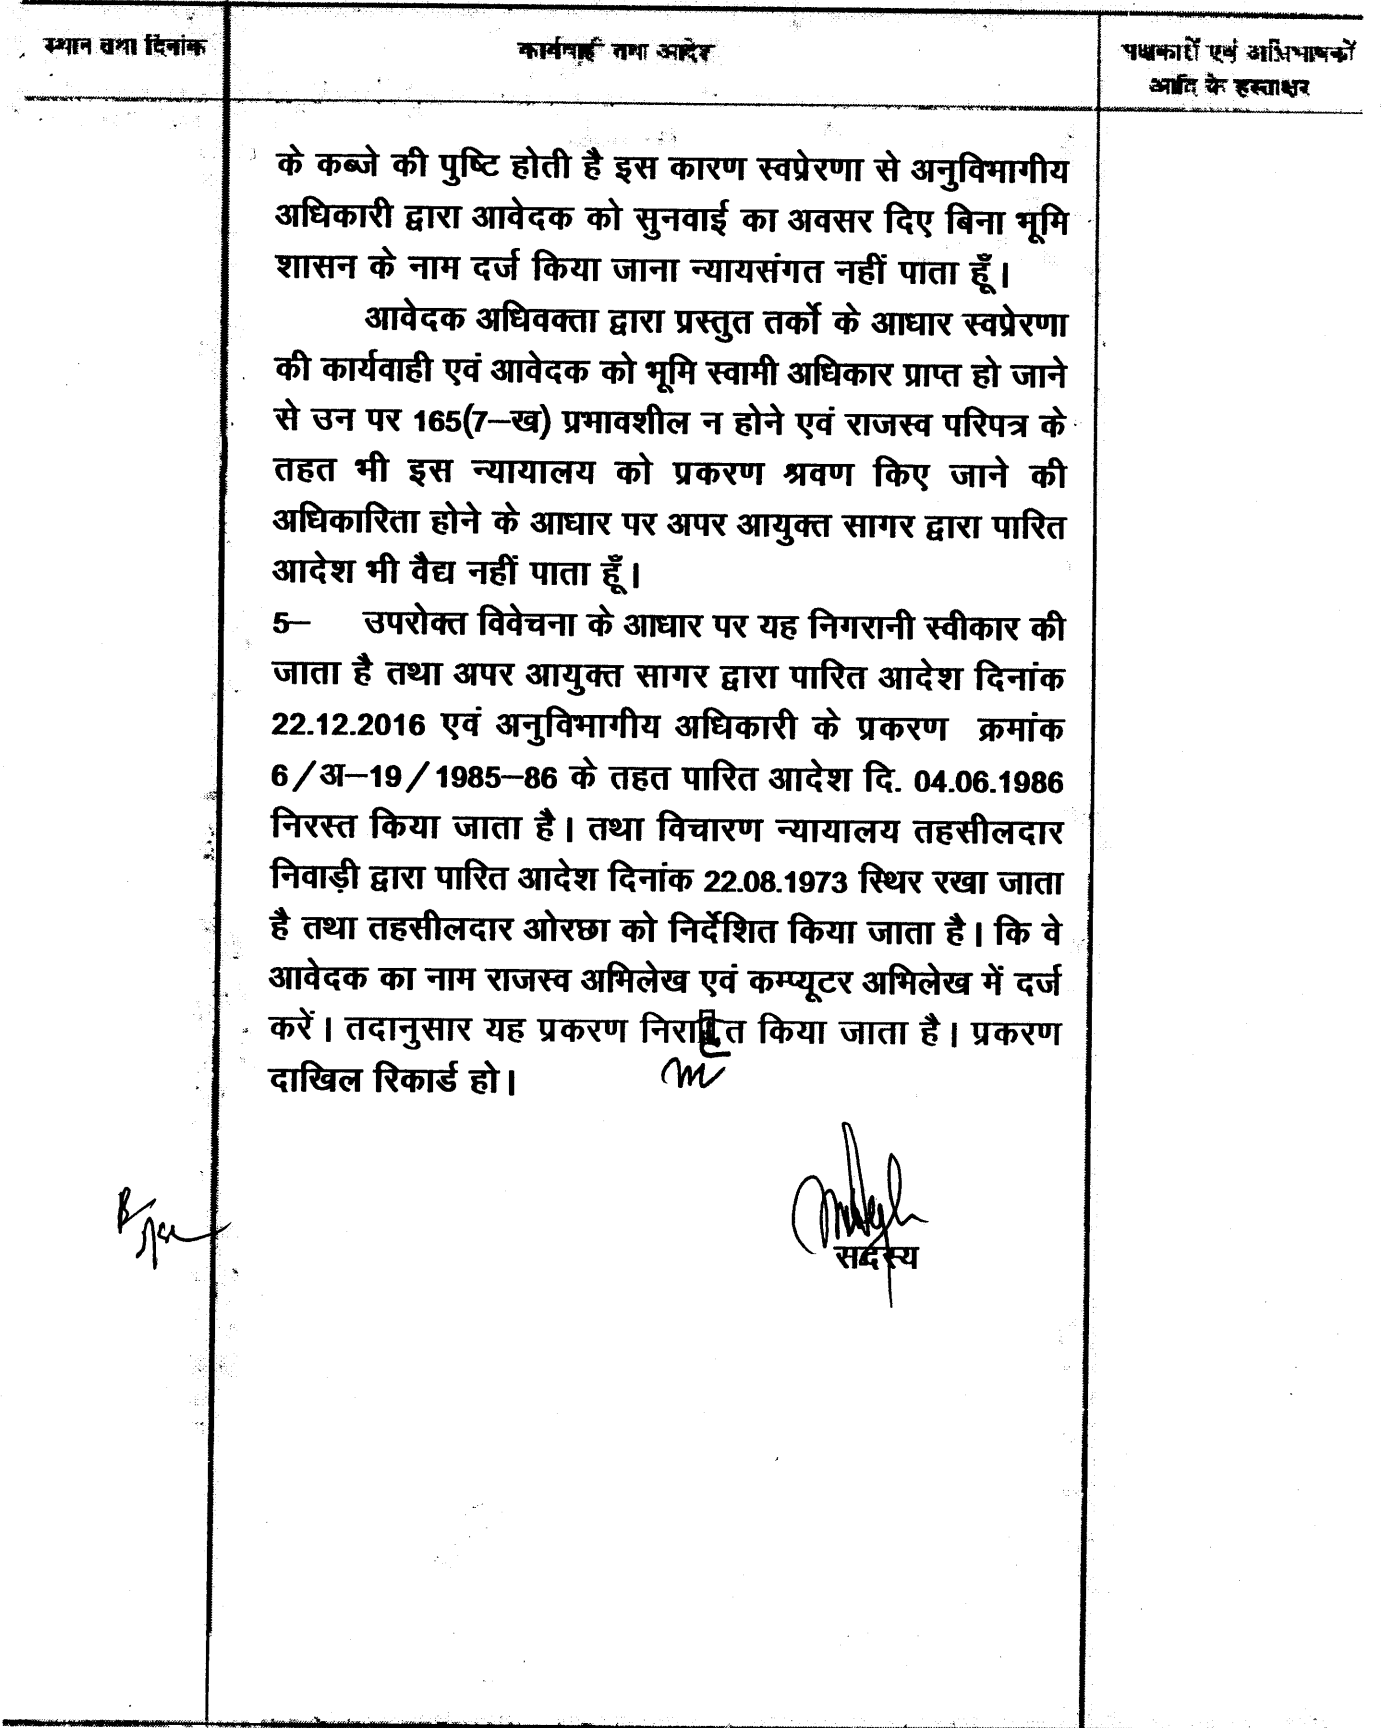 स्थान तथा दिनांक
कार्यवाही तथा आदेश
पक्षकारों एवं अभिभाषकों
आदि के हस्ताक्षर
के कब्जे की पुष्टि होती है इस कारण स्वप्रेरणा से अनुविभागीय
अधिकारी द्वारा आवेदक को सुनवाई का अवसर दिए बिना भूमि
शासन के नाम दर्ज किया जाना न्यायसंगत नहीं पाता हूँ।
आवेदक अधिवक्ता द्वारा प्रस्तुत तर्को के आधार स्वप्रेरणा
की कार्यवाही एवं आवेदक को भूमि स्वामी अधिकार प्राप्त हो जाने
से उन पर 165(7–ख) प्रभावशील न होने एवं राजस्व परिपत्र के
तहत भी इस न्यायालय को प्रकरण श्रवण किए जाने की
अधिकारिता होने के आधार पर अपर आयुक्त सागर द्वारा पारित
आदेश भी वैद्य नहीं पाता हूँ।
5– उपरोक्त विवेचना के आधार पर यह निगरानी स्वीकार की
जाता है तथा अपर आयुक्त सागर द्वारा पारित आदेश दिनांक
22.12.2016 एवं अनुविभागीय अधिकारी के प्रकरण क्रमांक
6/अ–19/1985–86 के तहत पारित आदेश दि. 04.06.1986
निरस्त किया जाता है। तथा विचारण न्यायालय तहसीलदार
निवाड़ी द्वारा पारित आदेश दिनांक 22.08.1973 स्थिर रखा जाता
है तथा तहसीलदार ओरछा को निर्देशित किया जाता है। कि वे
आवेदक का नाम राजस्व अभिलेख एवं कम्प्यूटर अभिलेख में दर्ज
करें। तदानुसार यह प्रकरण किया जाता है। प्रकरण
दाखिल रिकार्ड हो।
सदस्य